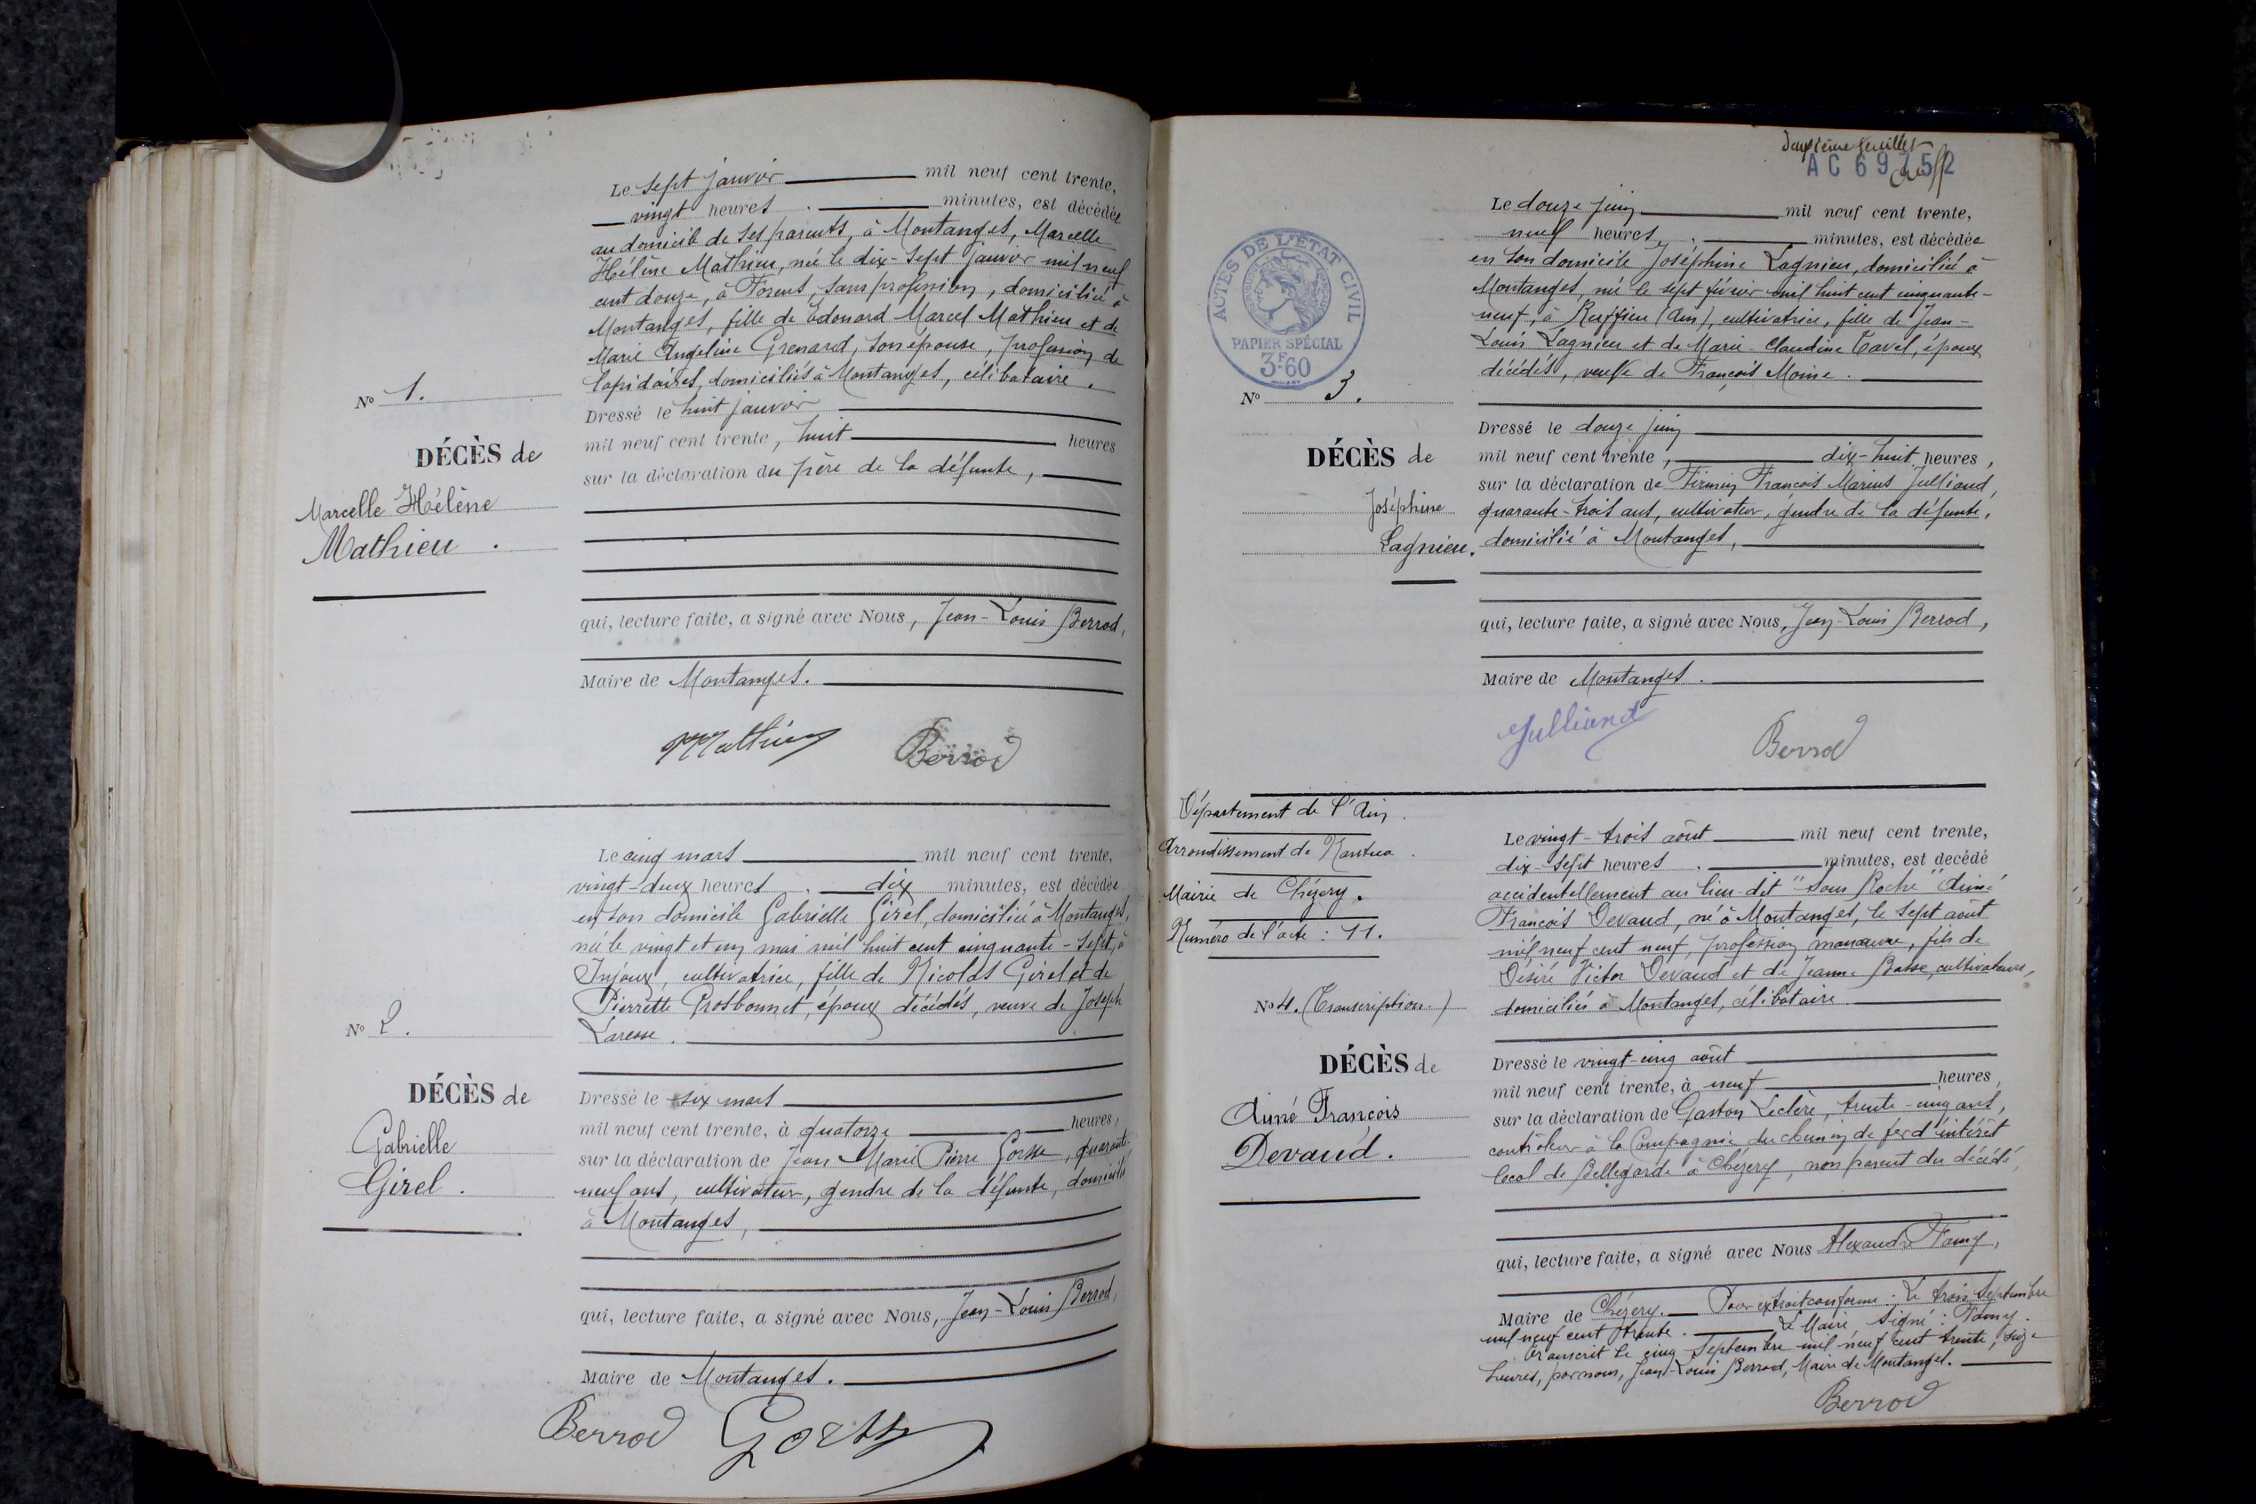 Le sept janvier mil neuf cent trente,
vingt heures minutes, est décédée
au domicile de ses parents, à Montanges, Marcelle
Hélène Mathieu, née le dix-sept janvier mil neuf
cent douze, à Forens, sans profession, domiciliée à
Montanges, fille de Edouard Marcel Mathieu et de
Marie Angeline Grenard, son épouse, profession de
lapidaires, domiciliés à Montanges, célibataire.
Nº 1.
Dressé le huit janvier
mil neuf cent trente, huit heures
DÉCÈS de
sur la déclaration du père de la défunte,
Marcelle Hélène
Mathieu.
qui, lecture faite, a signé avec Nous, Jean-Louis Berrod,
Maire de Montanges.
Mathieu Berrod
Le cinq mars mil neuf cent trente,
vingt-deux heures dix minutes, est décédée
en son domicile Gabrielle Girel, domiciliée à Montanges,
née le vingt et un mai mil huit cent cinquante-sept, à
Injoux, cultivatrice, fille de Nicolas Girel et de
Pierrette Grosbonnet, époux décédés, veuve de Joseph
Nº 2.
DÉCÈS de
Dressé le six mars
mil neuf cent trente, à quatorze heures,
Gabrielle
sur la déclaration de Jean Marie Pierre Gosse, quarante
Girel.
neuf ans, cultivateur, gendre de la défunte, domicilié
à Montanges,
qui, lecture faite, a signé avec Nous, Jean-Louis Berrod,
Maire de Montanges.
Berrod
Deuxième feuillet
AC 69752
ACTES DE L'ÉTAT CIVIL
PAPIER SPÉCIAL
3F60
Le douze juin mil neuf cent trente,
neuf heures minutes, est décédée
en son domicile Joséphine Lagnieu, domiciliée à
Montanges, née le sept février mil huit cent cinquante-
neuf, à Ruffieu (Ain), cultivatrice, fille de Jean-
Louis Lagnieu et de Marie-Claudine Tavel, époux
décédés, veuve de François Moine.
Nº 3.
Dressé le douze juin
DÉCÈS de
mil neuf cent trente, dix-huit heures,
sur la déclaration de Firmin François Marius Julliand,
Joséphine
quarante-trois ans, cultivateur, gendre de la défunte,
Lagnieu.
domicilié à Montanges,
qui, lecture faite, a signé avec Nous, Jean-Louis Berrod,
Maire de Montanges.
Julliand Berrod
Département de l'Ain.
Arrondissement de Nantua.
Mairie de Chézery.
Numéro de l'acte : 11.
Le vingt-trois août mil neuf cent trente,
dix-sept heures minutes, est décédé
accidentellement au lieu-dit "Sous Roche" Aimé
François Devaud, né à Montanges, le sept août
mil neuf cent neuf, profession manœuvre, fils de
Désiré Victor Devaud et de Jeanne cultivateurs,
domiciliés à Montanges, célibataire
Nº 4. (Transcription.)
DÉCÈS de
Aimé François
Devaud.
Dressé le vingt-cinq août
mil neuf cent trente, à neuf heures,
sur la déclaration de Gaston Leclère, trente-cinq ans,
contrôleur à la Compagnie du chemin de fer d'intérêt
local de Bellegarde à Chézery, non parent du décédé,
qui, lecture faite, a signé avec Nous Alexandre Famy,
Maire de Chézery. Pour extrait conforme : Le trois septembre
mil neuf cent trente. Le Maire, signé : Famy.
Transcrit le cinq septembre mil neuf cent trente, seize
heures, par nous, Jean-Louis Berrod, Maire de Montanges.
Berrod